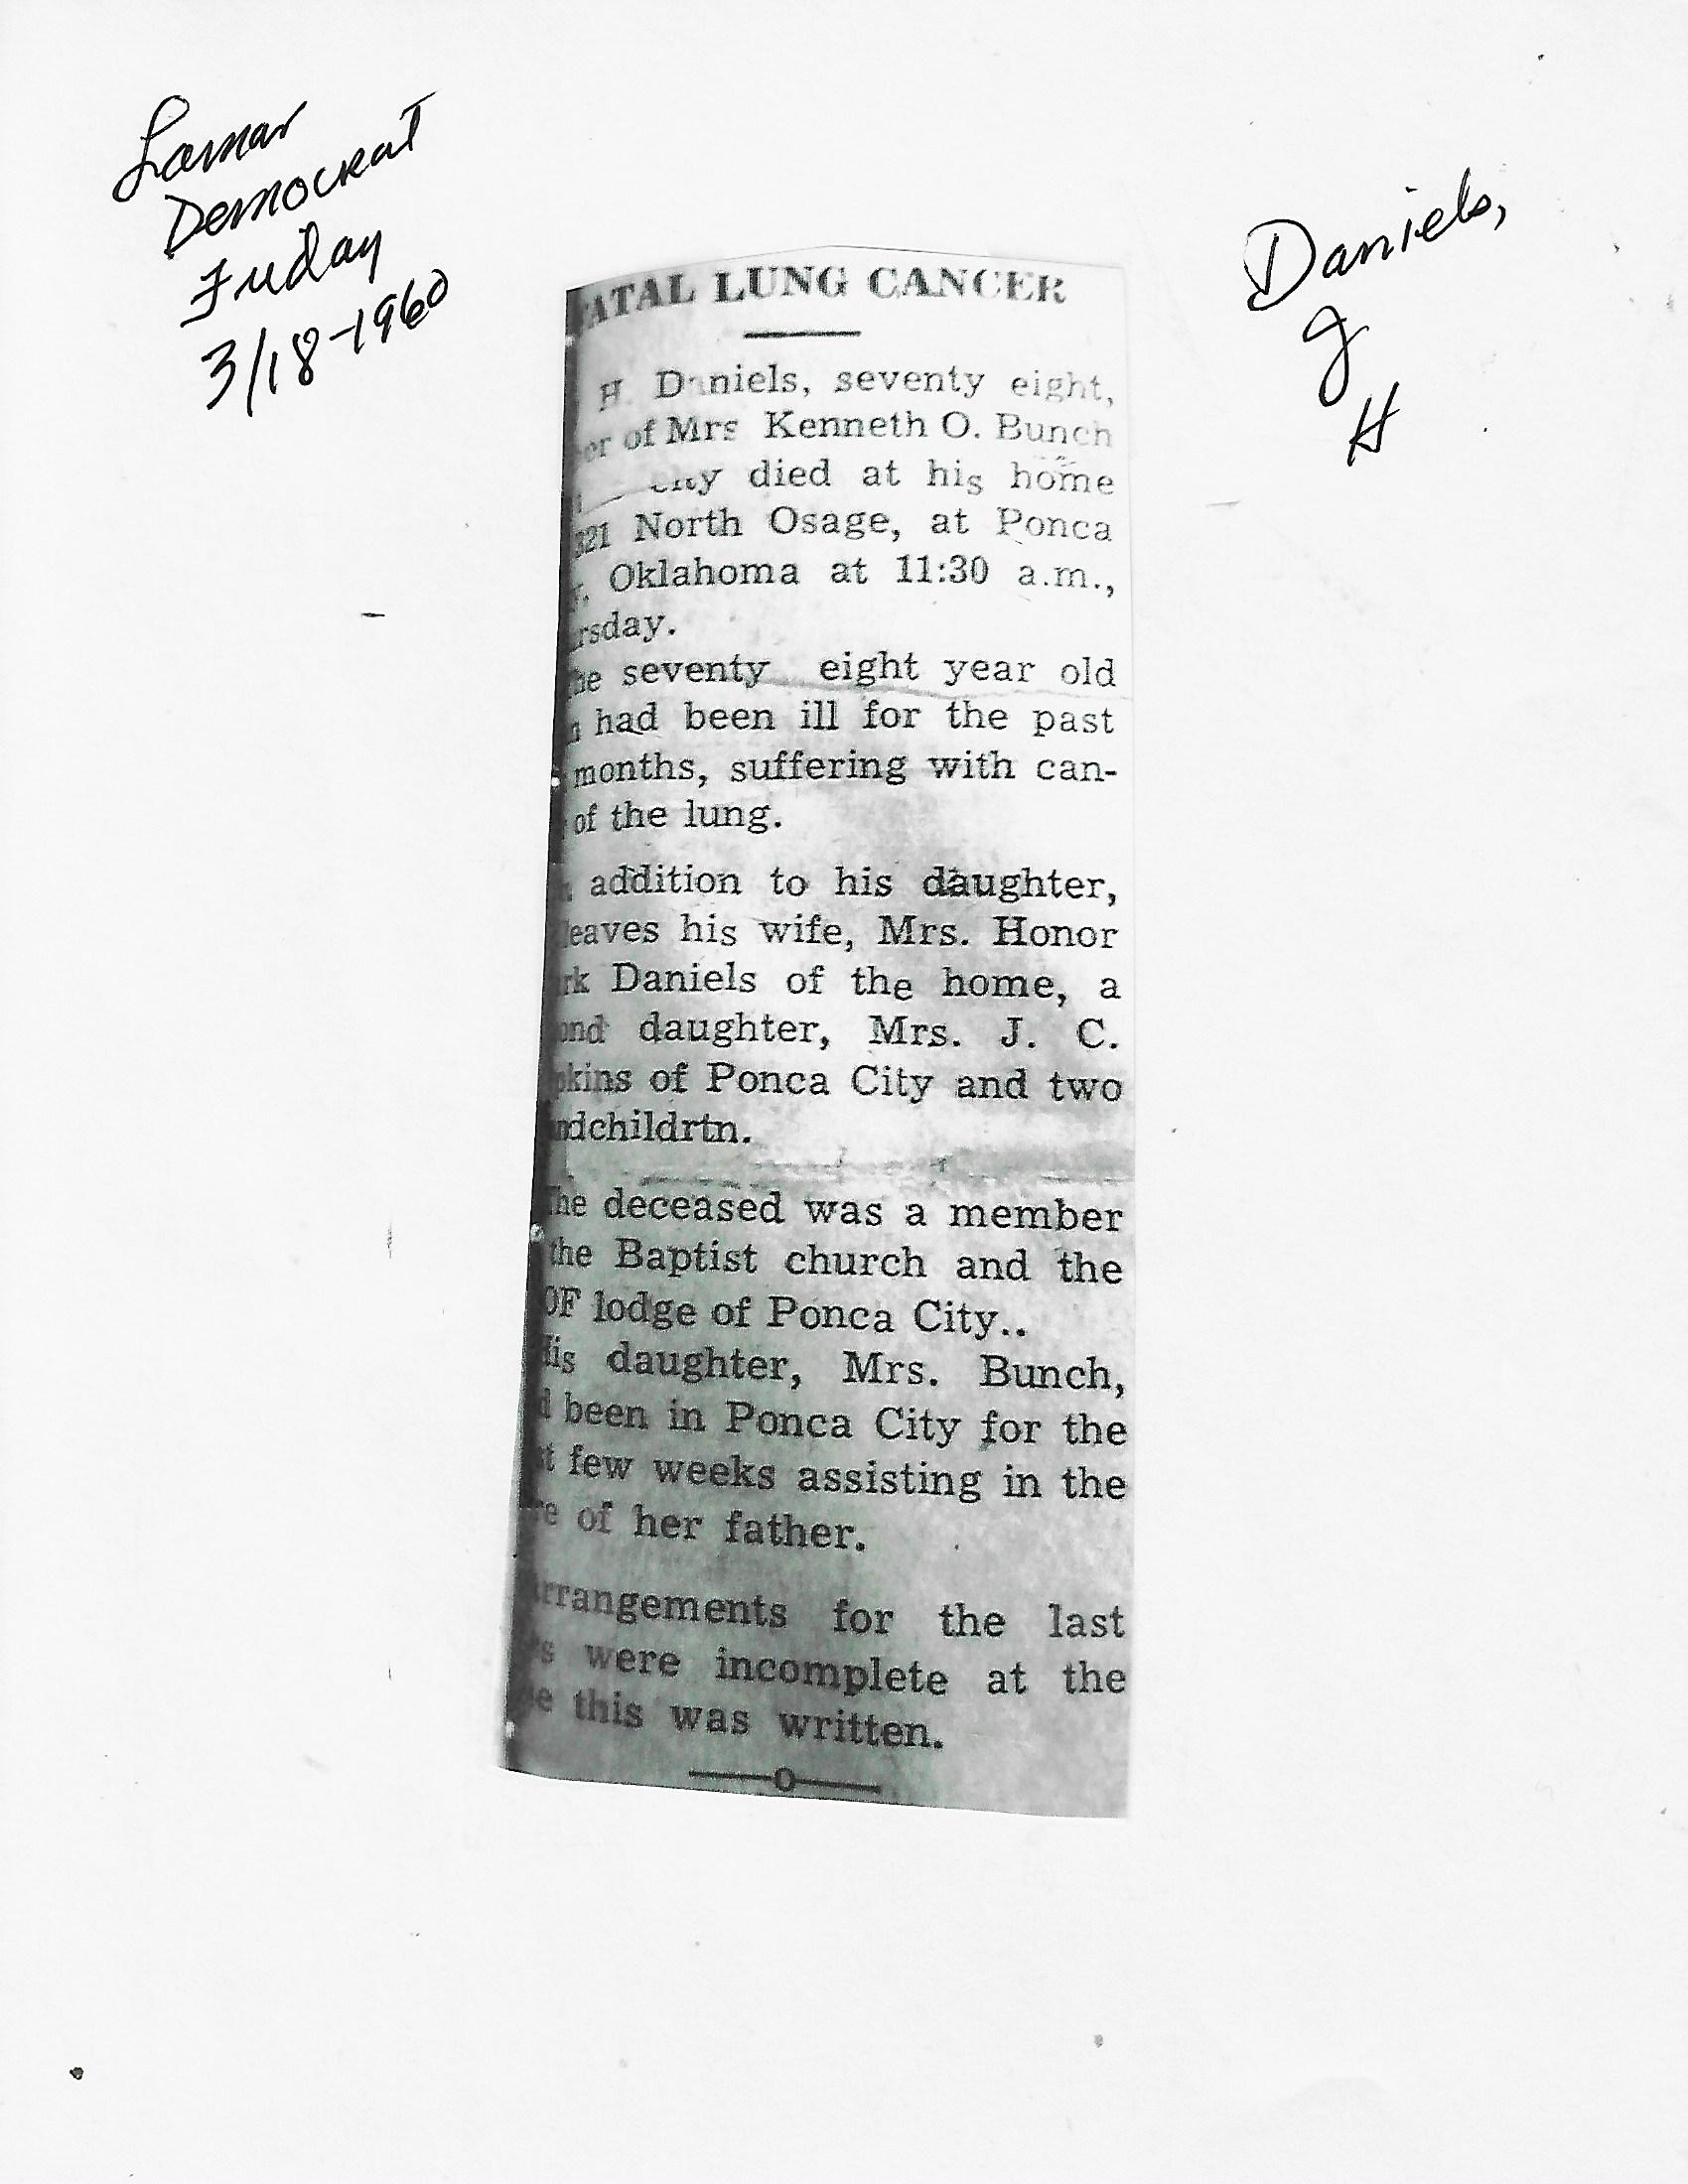 Lamar
Democrat
Friday
3/18-1960
Daniels,
J
H
FATAL LUNG CANCER
H. Daniels, seventy eight,
of Mrs Kenneth O. Bunch
city died at his home
321 North Osage, at Ponca
Oklahoma at 11:30 a.m.,
rsday.
he seventy eight year old
had been ill for the past
months, suffering with can-
of the lung.
addition to his daughter,
leaves his wife, Mrs. Honor
rk Daniels of the home, a
ond daughter, Mrs. J. C.
pkins of Ponca City and two
ndchildrtn.
The deceased was a member
the Baptist church and the
OF lodge of Ponca City..
His daughter, Mrs. Bunch,
d been in Ponca City for the
st few weeks assisting in the
re of her father.
Arrangements for the last
s were incomplete at the
e this was written.